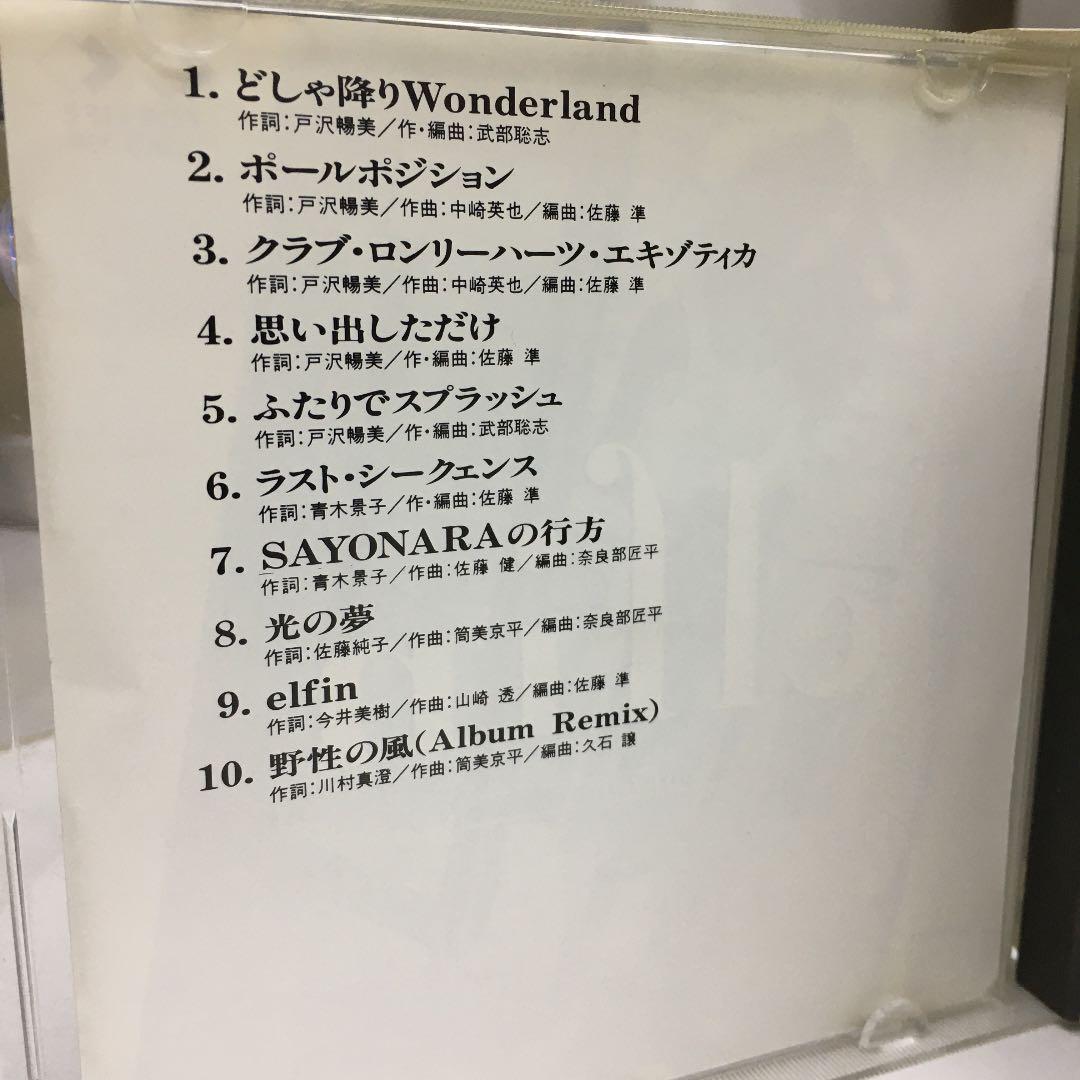 1. どしゃ降りWonderland
作詞：戸沢暢美／作・編曲：武部聡志
2. ポールポジション
作詞：戸沢暢美／作曲：中崎英也／編曲：佐藤 準
3. クラブ・ロンリーハーツ・エキゾティカ
作詞：戸沢暢美／作曲：中崎英也／編曲：佐藤 準
4. 思い出しただけ
作詞：戸沢暢美／作・編曲：佐藤 準
5. ふたりでスプラッシュ
作詞：戸沢暢美／作・編曲：武部聡志
6. ラスト・シークェンス
作詞：青木景子／作・編曲：佐藤 準
7. SAYONARAの行方
作詞：青木景子／作曲：佐藤 健／編曲：奈良部匠平
8. 光の夢
作詞：佐藤純子／作曲：筒美京平／編曲：奈良部匠平
9. elfin
作詞：今井美樹／作曲：山崎 透／編曲：佐藤 準
10. 野性の風(Album Remix)
作詞：川村真澄／作曲：筒美京平／編曲：久石 譲